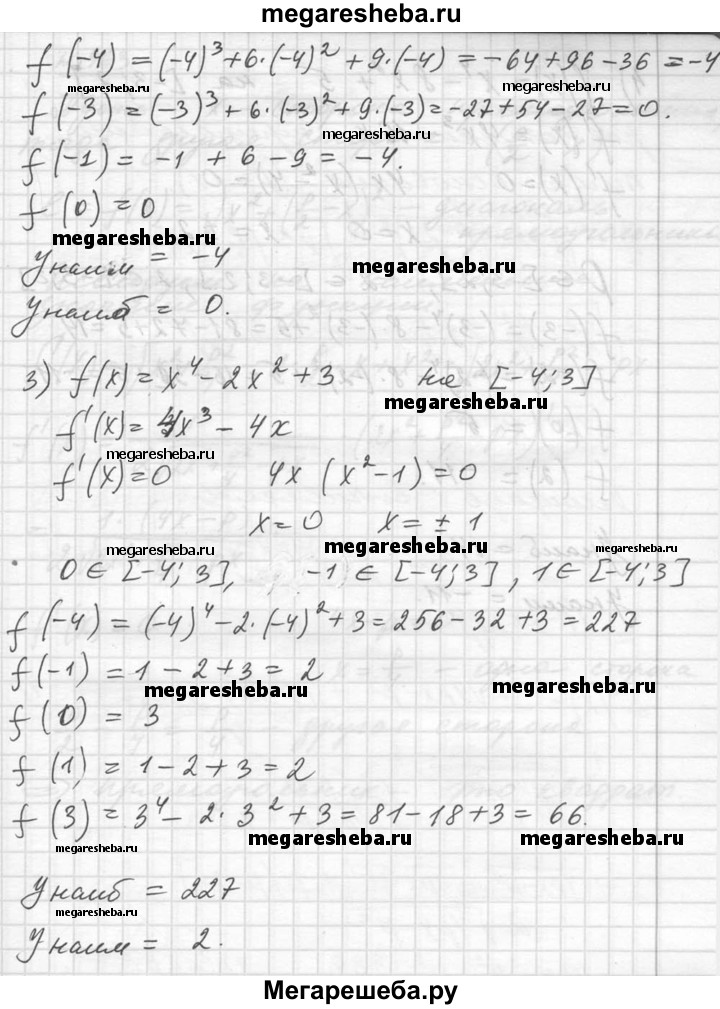 megaresheba.ru
f(-4) = (-4)³+6·(-4)²+9·(-4) = -64+96-36 = -4
megaresheba.ru megaresheba.ru
f(-3) = (-3)³+6·(-3)²+9·(-3) = -27+54-27=0.
megaresheba.ru
f(-1) = -1 + 6 - 9 = -4.
f(0) = 0
megaresheba.ru
Унаим = -4
megaresheba.ru
Унаиб = 0.
3) f(x) = x⁴-2x²+3 на [-4; 3]
megaresheba.ru
f'(x) = 4x³ - 4x
megaresheba.ru
f'(x)=0 4x (x²-1) = 0
x=0 x=±1
megaresheba.ru megaresheba.ru megaresheba.ru
0∈[-4; 3], -1∈[-4; 3], 1∈[-4; 3]
f(-4) = (-4)⁴-2·(-4)²+3=256-32+3=227
f(-1) = 1-2+3= 2
megaresheba.ru megaresheba.ru
f(0) = 3
f(1) = 1-2+3=2
f(3) = 3⁴- 2·3²+3=81-18+3= 66.
megaresheba.ru megaresheba.ru megaresheba.ru
Унаиб = 227
megaresheba.ru
Унаим = 2.
Мегарешеба.ру